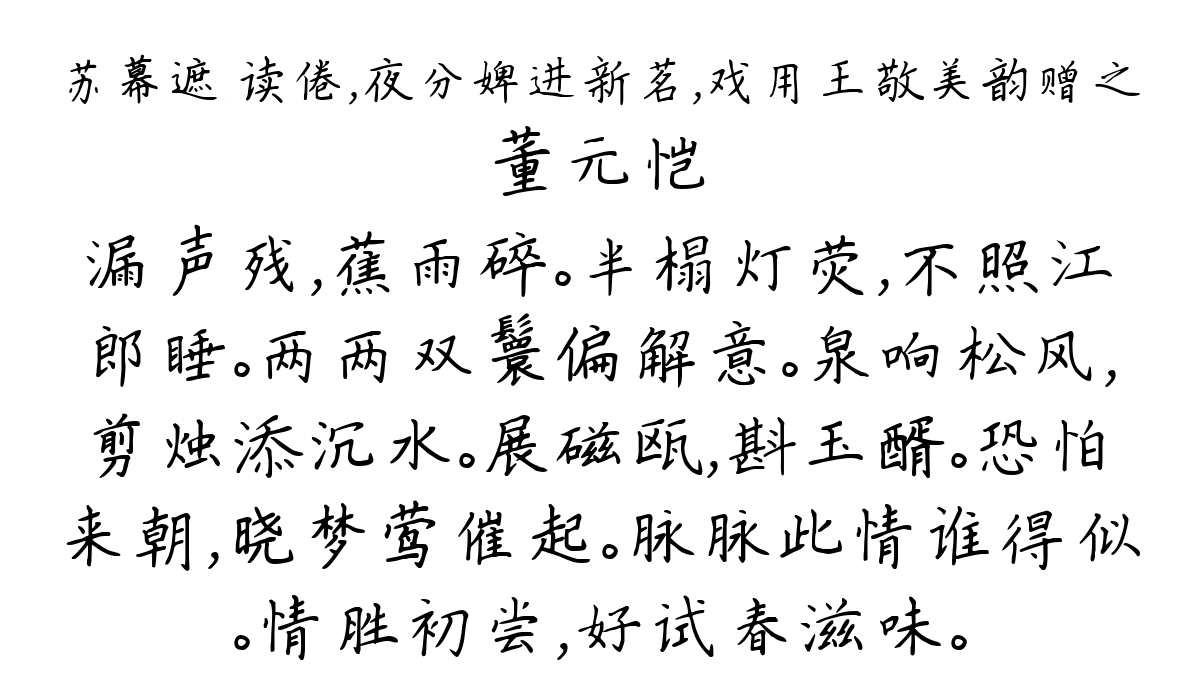 苏幕遮 读倦,夜分婢进新茗,戏用王敬美韵赠之
董元恺
漏声残,蕉雨碎。半榻灯荧,不照江
郎睡。两两双鬟偏解意。泉响松风,
剪烛添沉水。展磁瓯,斟玉醑。恐怕
来朝,晓梦莺催起。脉脉此情谁得似
。情胜初尝,好试春滋味。